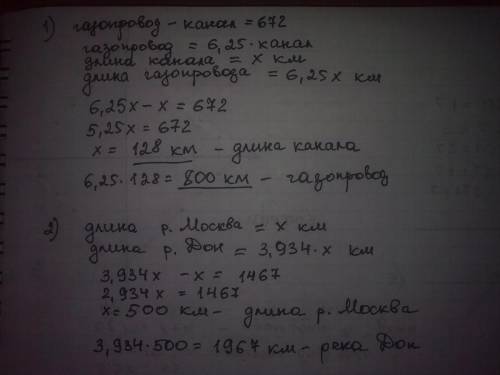 1) газопровод - канал = 672
газопровод = 6,25 · канал
длина канала = x км
длина газопровода = 6,25x км
6,25x - x = 672
5,25x = 672
x = 128 км - длина канала
6,25 · 128 = 800 км - газопровод
2) длина р. Москва = x км
длина р. Дон = 3,934 · x км
3,934x - x = 1467
2,934x = 1467
x = 500 км - длина р. Москва
3,934 · 500 = 1967 км - река Дон